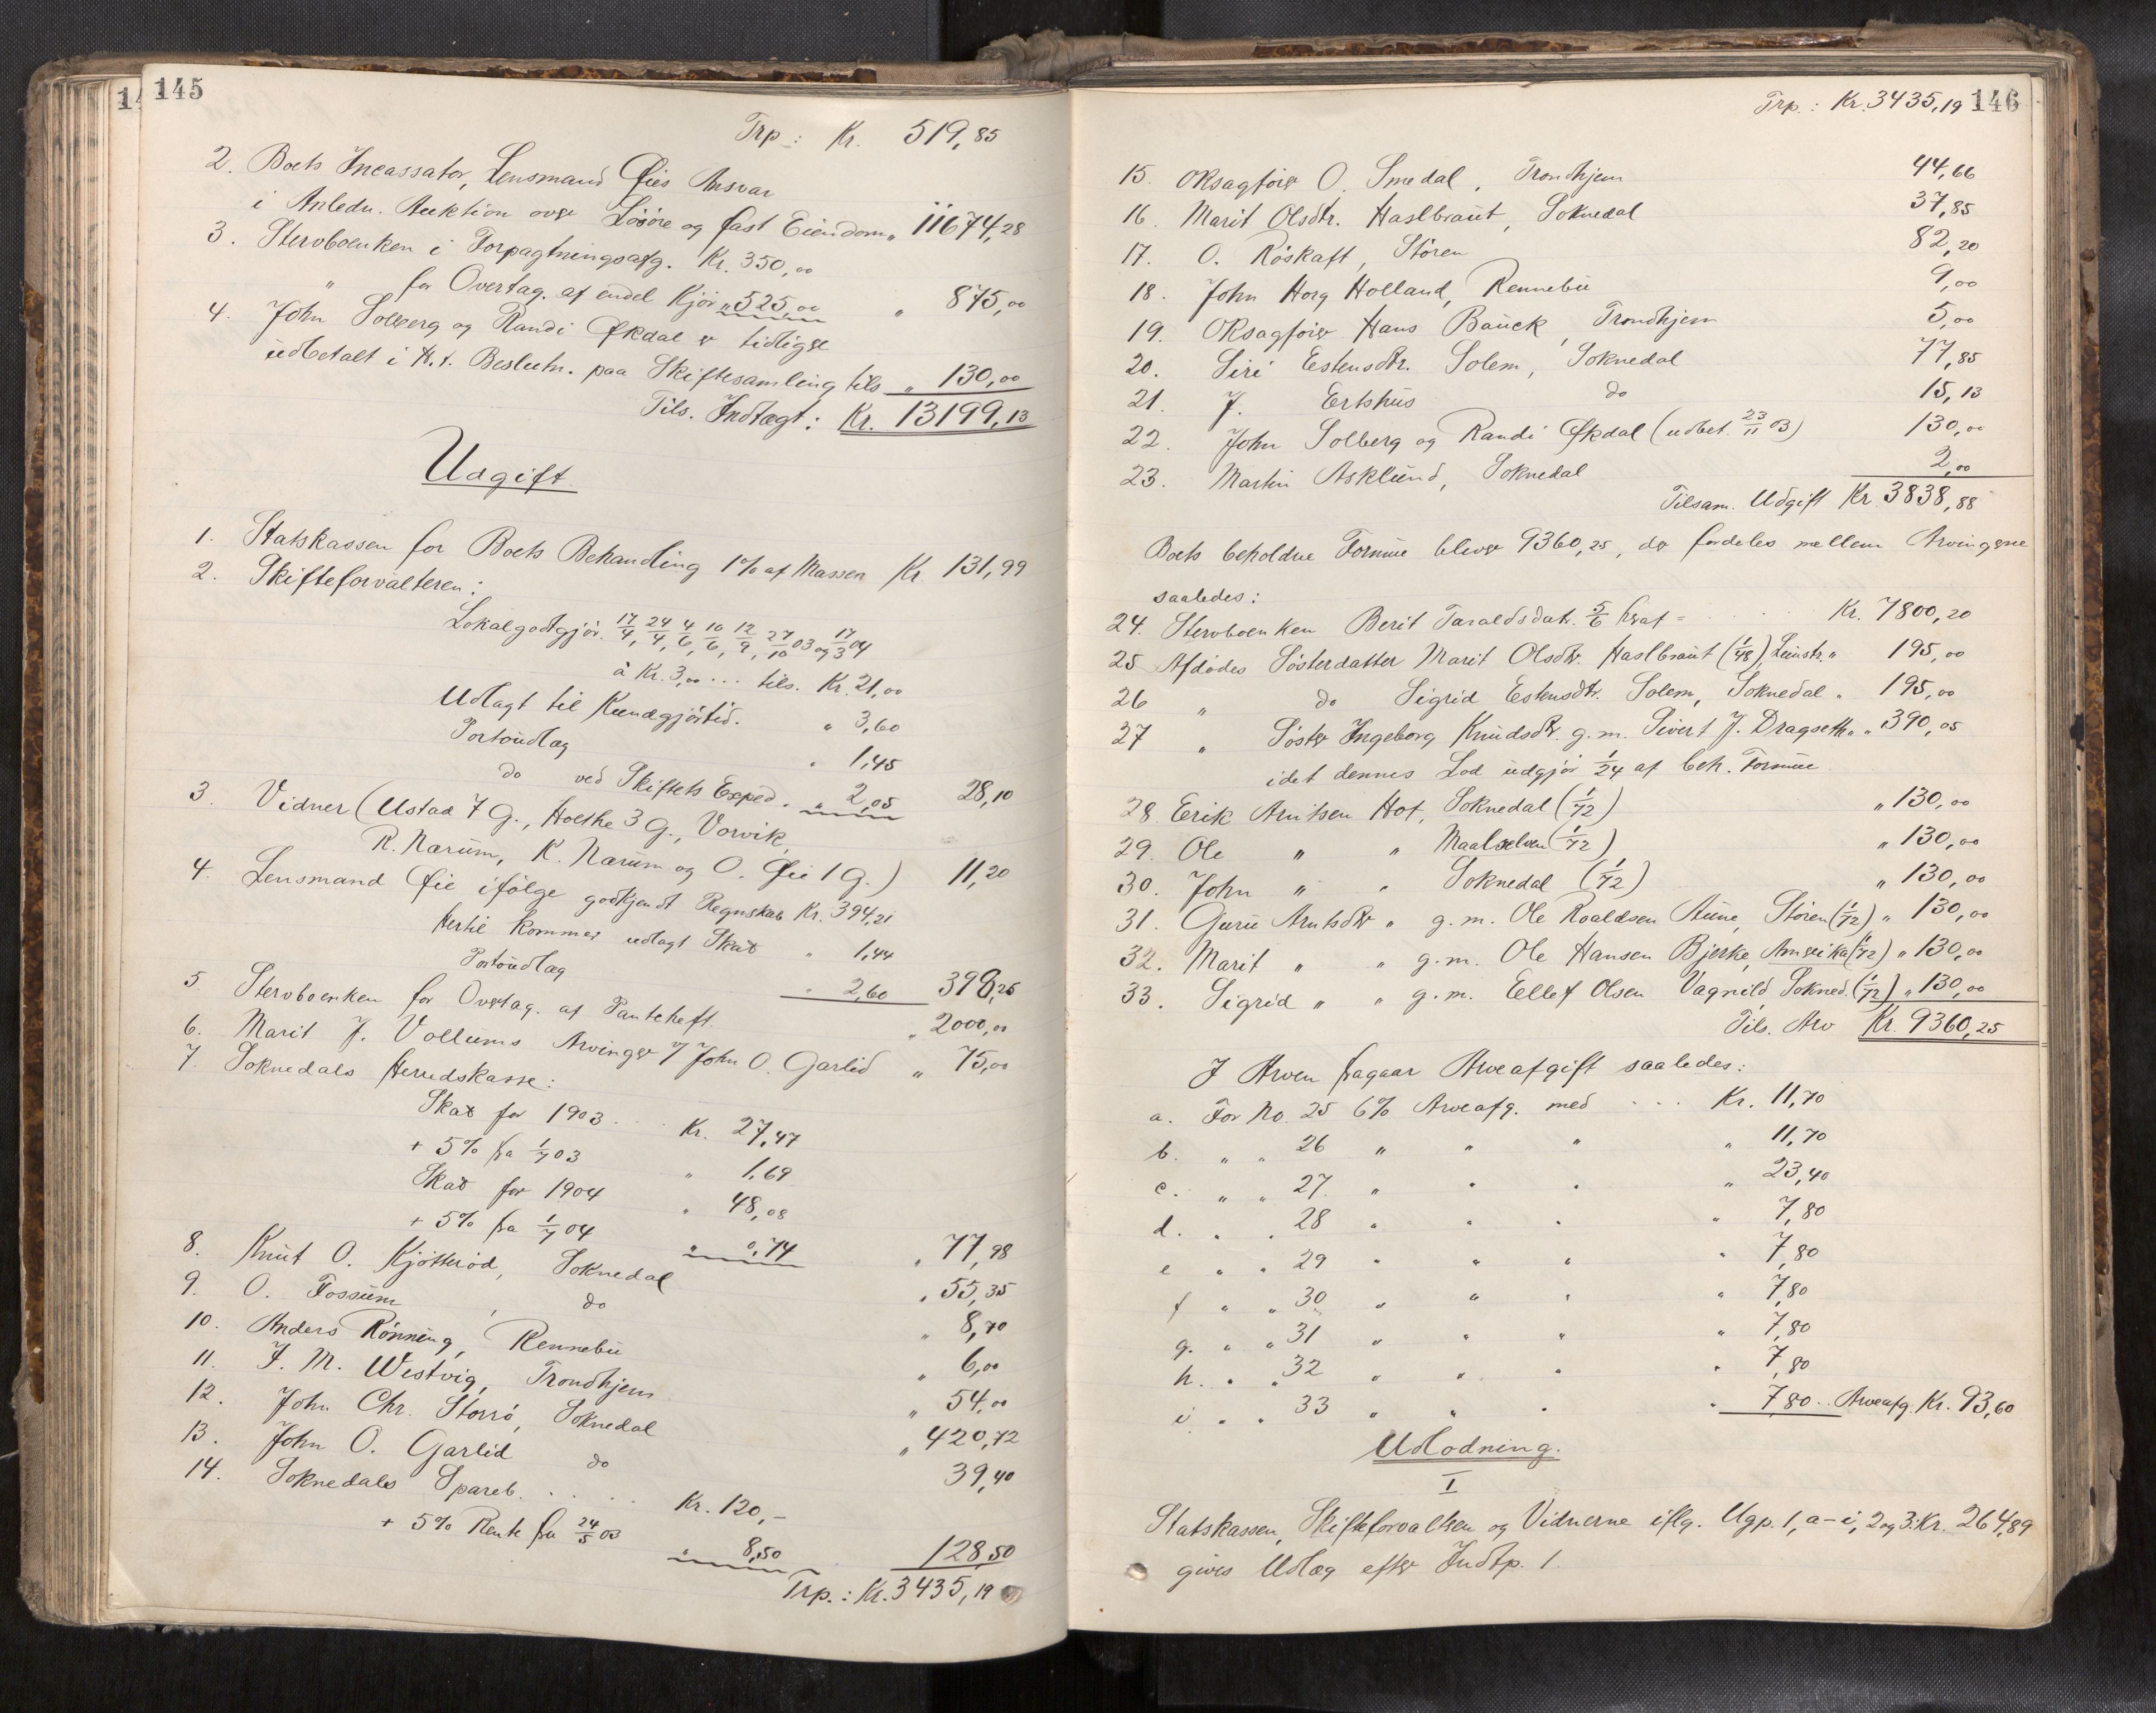 145
Trp.: Kr. 519,85
2. Boets Incassator, Lensmand Øies Ansvar
i Anledn. Auktion over Løsøre og fast Eiendom „ 11674,28
3. Stervboenken i Forpagtningsafg. Kr. 350,00
„ for Overtag. af endel Kjør „ 525,00 „ 875,00
4. John Solberg og Randi Økdal er tidligere
udbetalt i H.t. Beslutn. paa Skiftesamling tils „ 130,00
Tils. Indtægt: Kr. 13199,13
Udgift
1. Statskassen for Boets Behandling 1% af Massen Kr. 131,99
2. Skifteforvalteren:
Lokalgodtgjør. 17/4, 24/4, 4/6, 16/6, 12/9, 27/10 03 og 17/3 04
à Kr. 3,00 ... tils. Kr. 21,00
Udlagt til Kundgjørtid. „ 3,60
Portoudlæg „ 1,45
do ved Skiftets Exped. „ 2,05 28,10
3. Vidner (Ustad 7 G., Holthe 3 G., Vorvik,
R. Nærum, K. Nærum og O. Øie 1 G.) 11,20
4. Lensmand Øie ifølge godkjendt Regnskab Kr. 394,21
Hertil kommer udlagt Skat „ 1,44
Portoudlæg „ 2,60 398,25
5. Stervboenken for Overtag. af Panteheft. „ 2000,00
6. Marit J. Vollums Arvinger v/ John O. Garlid „ 75,00
7. Soknedals Herredskasse:
Skat for 1903 ... Kr. 27,47
+ 5% fra 1/7 03 „ 1,69
Skat for 1904 „ 48,08
+ 5% fra 1/7 04 „ 0,74 „ 77,98
8. Knut O. Kjøtterød, Soknedal „ 55,35
9. O. Fossum, do „ 8,70
10. Anders Rønning, Rennebu „ 6,00
11. J. M. Westvig, Trondhjem „ 54,00
12. John Chr. Storrø, Soknedal „ 420,72
13. John O. Garlid do 39,40
14. Soknedals Spareb. .... Kr. 120,-
+ 5% Rente fra 24/5 03 „ 8,50 128,50
Trp.: Kr. 3435,19
146
Trp.: Kr. 3435,19
15. ORsagfører O. Smedal, Trondhjem 44,66
16. Marit Olsdtr. Haslbraut, Soknedal 37,85
17. O. Røskaft, Støren 82,20
18. John Horg Holland, Rennebu 9,00
19. ORsagfører Hans Bauck, Trondhjem 5,00
20. Siri Estensdtr. Solem, Soknedal 77,85
21. J. Ertshus do 15,13
22. John Solberg og Randi Økdal (udbet. 23/11 03) 130,00
23. Martin Asklund, Soknedal 2,00
Tilsam. Udgift Kr. 3838,88
Boets beholdne Formue bliver 9360,25, der fordeles mellem Arvingerne
saaledes:
24. Stervboenken Berit Taraldsdatr. 5/6 heraf = .. Kr. 7800,20
25 Afdødes Søsterdatter Marit Olsdtr. Haslbraut (1/48), Leinstr. „ 195,00
26 „ do Sigrid Estensdtr. Solem, Soknedal „ 195,00
27 „ Søster Ingeborg Knudsdtr g.m. Sivert J. Dragseth „ „ 390,05
idet dennes Lod udgjør 1/24 af beh. Formue.
28. Erik Arntsen Hof, Soknedal (1/72) „ 130,00
29. Ole „ „ Maalselven (1/72) „ 130,00
30. John „ „ Soknedal (1/72) „ 130,00
31. Guru Arntsdtr „ g.m. Ole Roaldsen Aune, Støren (1/72) „ 130,00
32. Marit „ „ g.m. Ole Hansen Bjerke, Amerika (1/72) „ 130,00
33. Sigrid „ „ g.m. Ellef Olsen Vagnild, Sokned. (1/72) „ 130,00
Tils. Arv Kr. 9360,25
I Arven fragaar Arveafgift saaledes:
a. For No. 25 6% Arveafg. med ... Kr. 11,70
b. „ „ 26 „ „ „ „ 11,70
c. „ „ 27. „ „ „ „ 23,40
d. „ „ 28 „ „ „ „ 7,80
e „ „ 29 „ „ „ „ 7,80
f „ „ 30 „ „ „ „ 7,80
g. „ „ 31 „ „ „ „ 7,80
h. „ „ 32 „ „ „ „ 7,80
i „ „ 33 „ „ „ „ 7,80 .. Arveafg. Kr. 93,60
Udlodning.
I
Statskassen, Skifteforvalteren og Vidnerne iflg. Ugp. 1, a-i, 2 og 3: Kr. 264,89
gives Udlæg efter Indtp. 1.